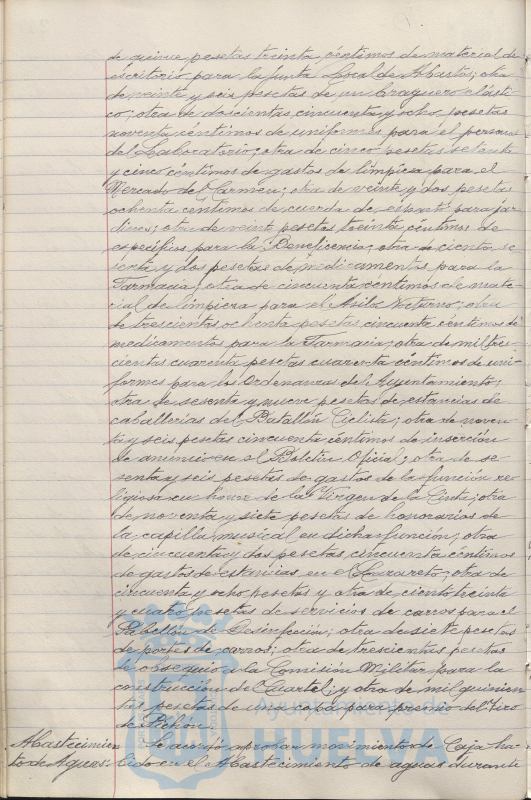 de quince pesetas treinta céntimos de material de
escritorio para la Junta Local de Abastos; otra
de veinte y seis pesetas de un braguero elásti-
co; otra de doscientas cincuenta y ocho pesetas
noventa céntimos de uniformes para el personal
del Laboratorio; otra de cinco pesetas setenta
y cinco céntimos de gastos de limpieza para el
Mercado del Carmen; otra de veinte y dos pesetas
ochenta céntimos de cuerda de esparto para jar-
dines; otra de veinte pesetas treinta céntimos de
específicos para la Beneficencia; otra de ciento se-
senta y dos pesetas de medicamentos para la
Farmacia; otra de cincuenta céntimos de mate-
rial de limpieza para el Asilo Nocturno; otra
de trescientas ochenta pesetas cincuenta céntimos de
medicamentos para la Farmacia; otra de mil tres-
cientas cuarenta pesetas cuarenta céntimos de uni-
formes para los Ordenanzas del Ayuntamiento;
otra de sesenta y nueve pesetas de estancias de
caballerías del Batallón Ciclista; otra de noven-
ta y seis pesetas cincuenta céntimos de inserción
de anuncios en el Boletín Oficial; otra de se-
senta y seis pesetas de gastos de la función re-
ligiosa en honor de la Virgen de la Cinta; otra
de noventa y siete pesetas de honorarios de
la capilla musical en dicha función; otra
de cincuenta y dos pesetas cincuenta céntimos
de gastos de estancias en el Lazareto; otra de
cincuenta y ocho pesetas y otra de ciento treinta
y cuatro pesetas de servicios de carros para el
Pabellón de Desinfección; otra de siete pesetas
de portes de carros; otra de trescientas pesetas
de obsequio a la Comisión Militar para la
construcción de Cuartel; y otra de mil quinien-
tas pesetas de una copa para premio del Tiro
de Pichón.
Abastecimien- Se acordó aprobar movimiento de Caja ha-
to de Aguas. bido en el Abastecimiento de aguas durante
Ayuntamiento de
HUELVA